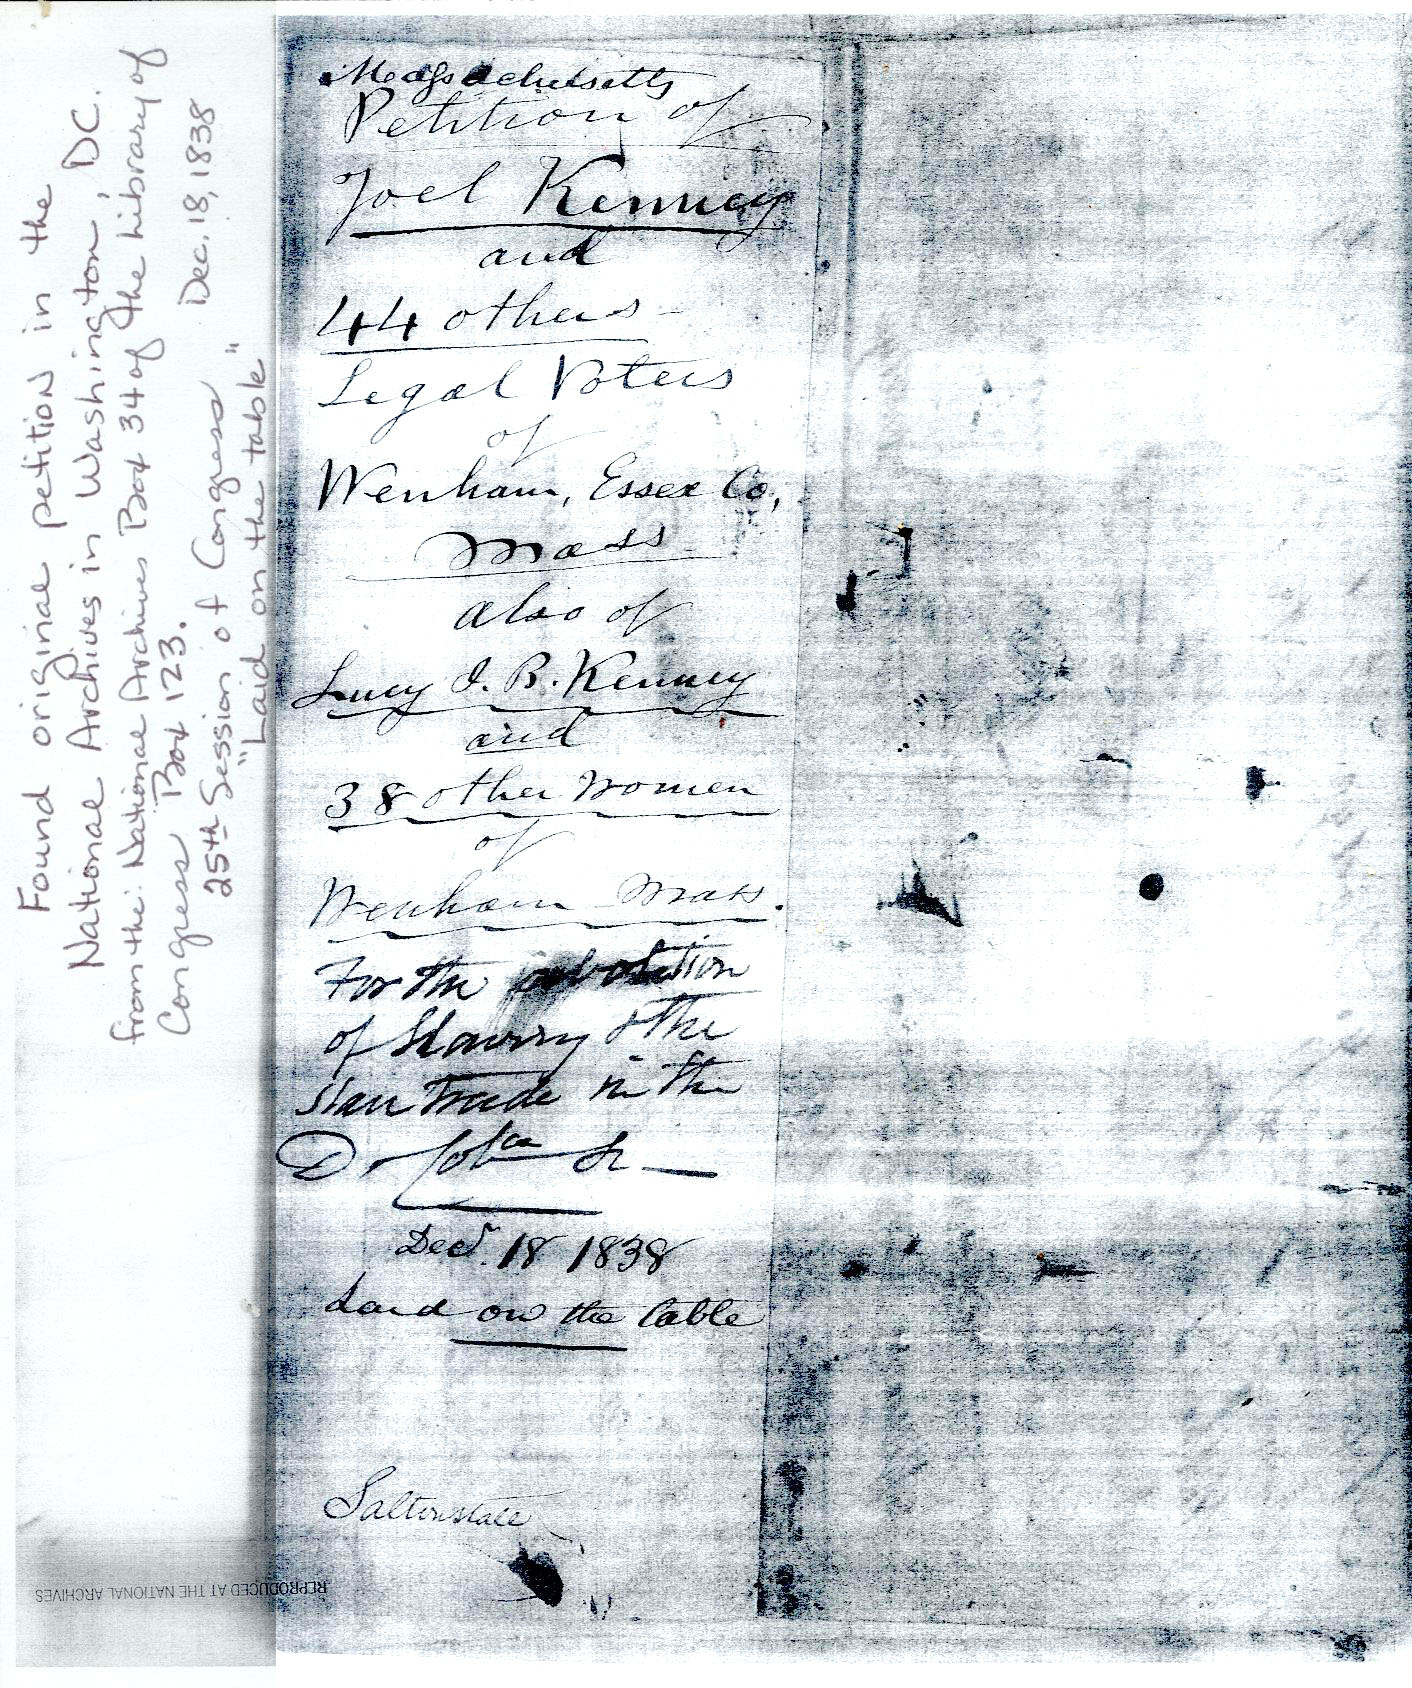 Found original petition in the
National Archives in Washington, DC.
from the: National Archives Box 34 of the Library of
Congress Box 123.
25th Session of Congress Dec. 18, 1838
"Laid on the table"
Massachusetts
Petition of
Joel Kenney
and
44 others
Legal Voters
of
Wenham, Essex Co,
Mass
also of
Lucy I. B. Kenney
and
38 other women
of
Wenham Mass.
For the abolition
of Slavery & the
Slave Trade in the
D. Cobia &c
Decr. 18 1838
Laid on the table
Saltonstall
REPRODUCED AT THE NATIONAL ARCHIVES